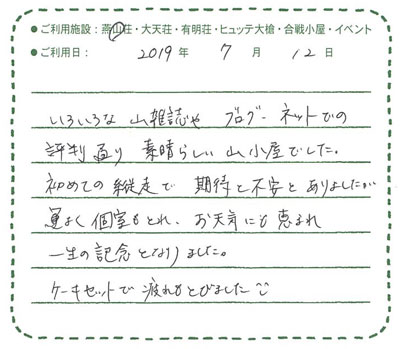 ●ご利用施設：燕山荘・大天荘・有明荘・ヒュッテ大槍・合戦小屋・イベント
●ご利用日： 2019 年 7 月 12 日
いろいろな 山雑誌や ブログ ネットでの
評判通り 素晴らしい 山小屋でした。
初めての縦走で 期待と不安とありましたが
運よく個室もとれ、お天気にも恵まれ
一生の記念となりました。
ケーキセットで 疲れもとびました